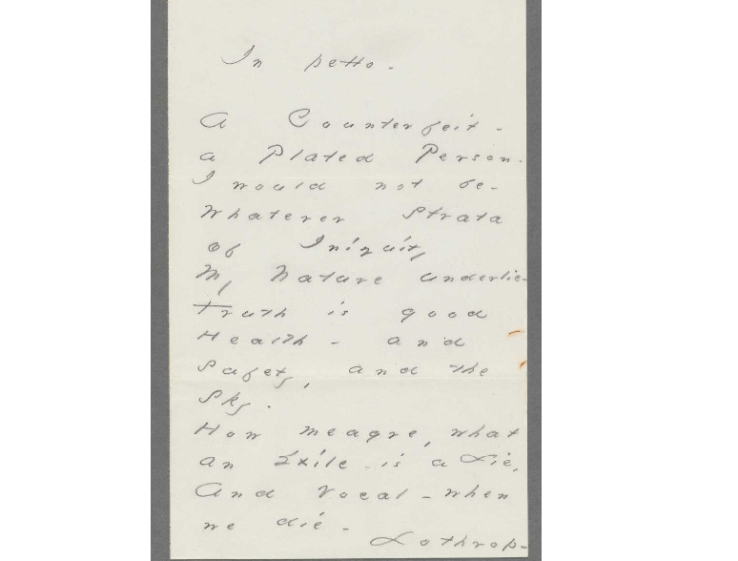 In petto -
A Counterfeit -
a Plated Person -
I would not be -
Whatever Strata
of Iniquity
My Nature underlie -
Truth is good
Health - and
Safety, and the
Sky.
How meagre, what
an Exile - is a Lie,
And Vocal - when
we die -
Lothrop -